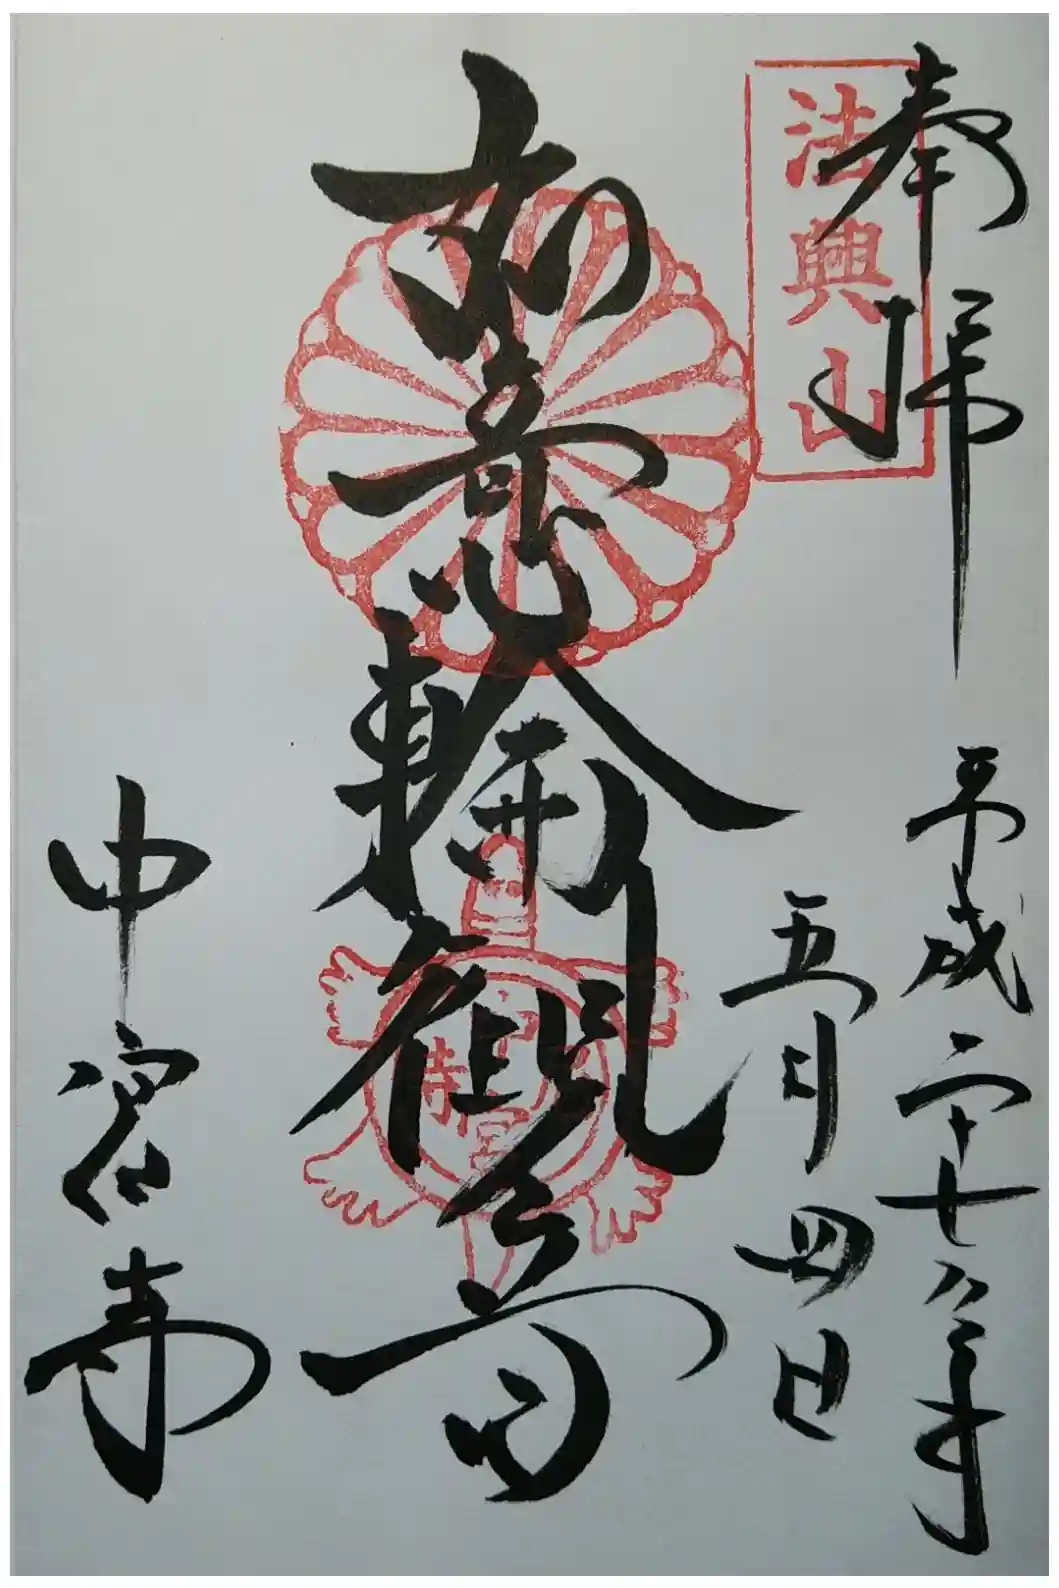 奉拝
法興山
平成二十七年
五月四日
如意輪觀音
中宮寺
中宮寺